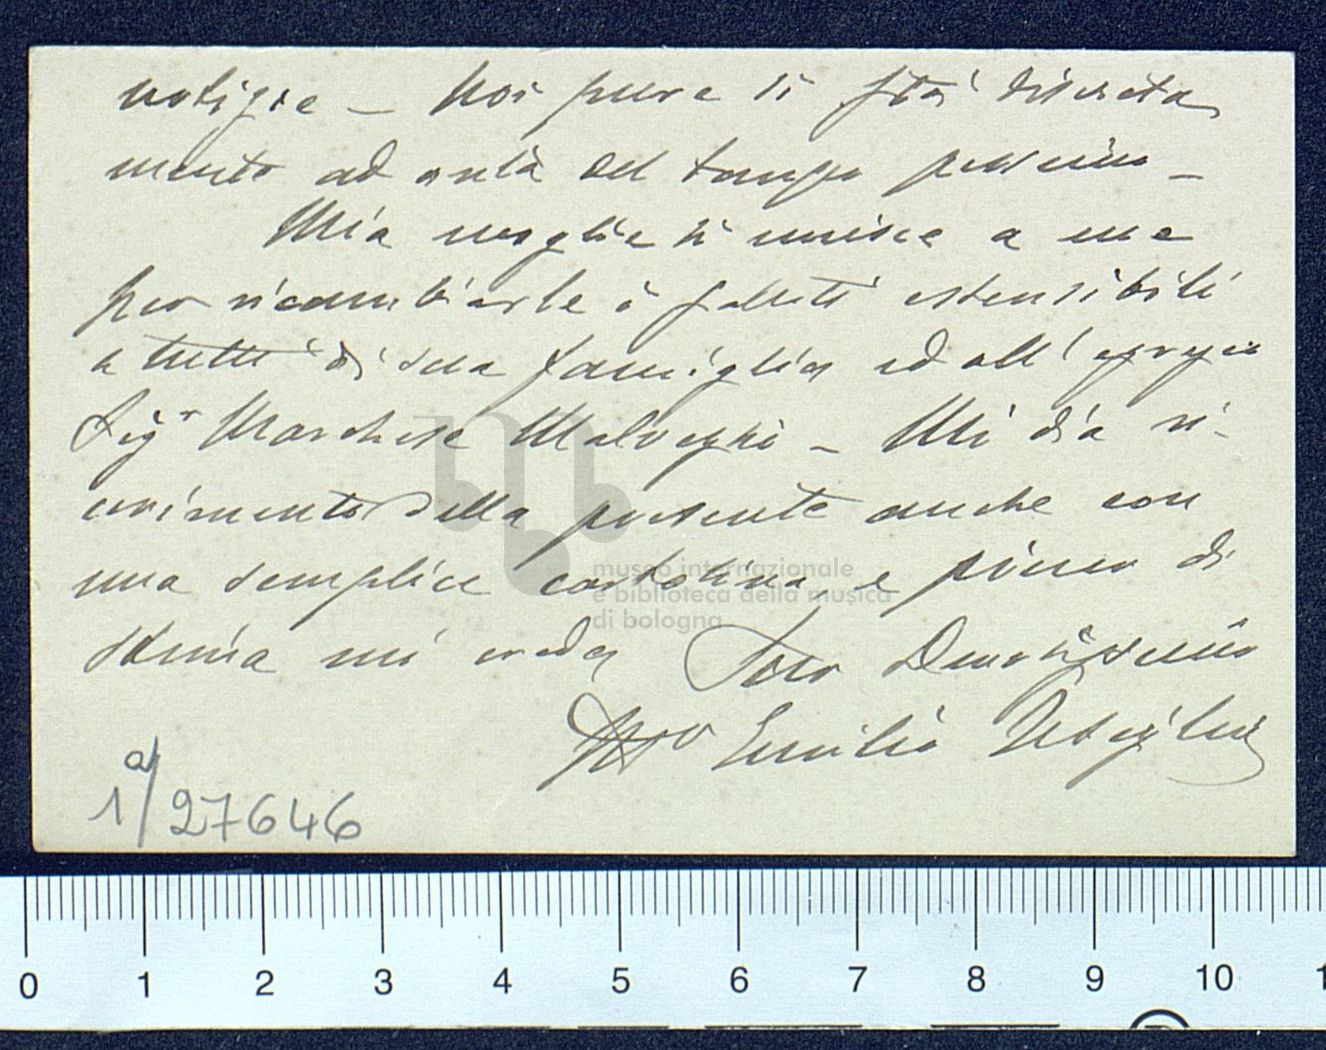 notizie — Noi pure si stà discreta
mente ad onta del tempo pessimo —
Mia moglie si unisce a me
per ricambiarle i saluti estensibili
a tutti di sua famiglia ed all'egregio
Sigr Marchese Malvezzi — Mi dia ri-
cevimento della presente anche con
una semplice cartolina e pieno di
stima mi creda Suo Devotissimo
Emilio Usiglio
a/
1/27646
museo internazionale
e biblioteca della musica
di bologna
0 1 2 3 4 5 6 7 8 9 10